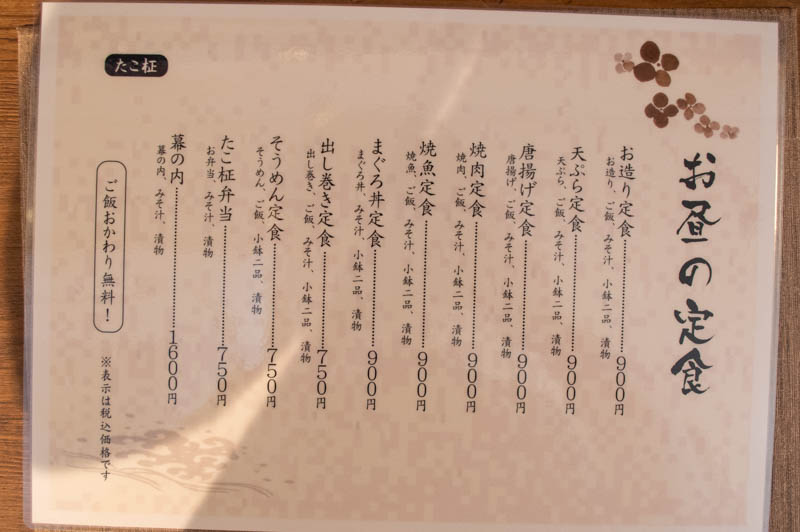 お昼の定食
お造り定食……900円
お造り、ご飯、みそ汁、小鉢二品、漬物
天ぷら定食……900円
天ぷら、ご飯、みそ汁、小鉢二品、漬物
唐揚げ定食……900円
唐揚げ、ご飯、みそ汁、小鉢二品、漬物
焼肉定食……900円
焼肉、ご飯、みそ汁、小鉢二品、漬物
焼魚定食……900円
焼魚、ご飯、みそ汁、小鉢二品、漬物
まぐろ丼定食……900円
まぐろ丼、みそ汁、小鉢二品、漬物
出し巻き定食……750円
出し巻き、ご飯、みそ汁、小鉢二品、漬物
そうめん定食……750円
そうめん、ご飯、小鉢二品、漬物
たこ柾弁当……750円
お弁当、みそ汁、漬物
幕の内……1600円
幕の内、みそ汁、漬物
ご飯おかわり無料！
※表示は税込価格です
たこ柾